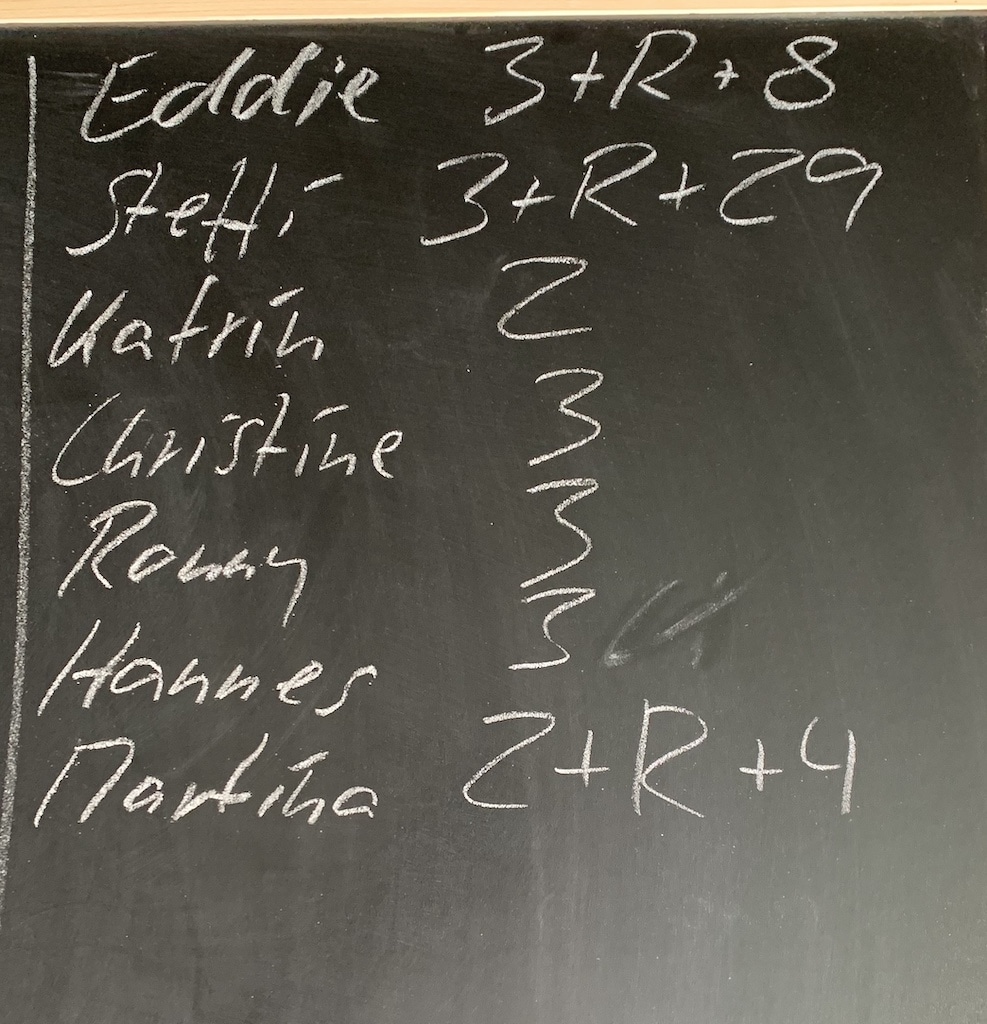 Eddie 3+R+8
Steffi 3+R+29
Katrin 2
Christine 3
Ronny 3
Hannes 3
Martina 2+R+4